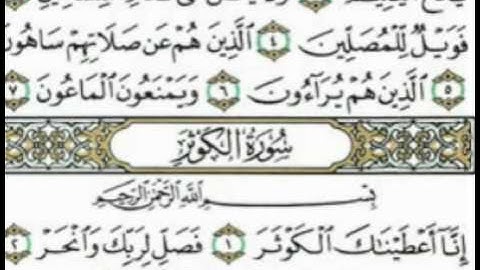 فَوَيْلٌ لِّلْمُصَلِّينَ ٤ الَّذِينَ هُمْ عَن صَلَاتِهِمْ سَاهُونَ
٥ الَّذِينَ هُمْ يُرَاءُونَ ٦ وَيَمْنَعُونَ الْمَاعُونَ ٧
سُورَةُ الكَوْثَرِ
بِسْمِ اللَّهِ الرَّحْمَٰنِ الرَّحِيمِ
إِنَّا أَعْطَيْنَاكَ الْكَوْثَرَ ١ فَصَلِّ لِرَبِّكَ وَانْحَرْ ٢